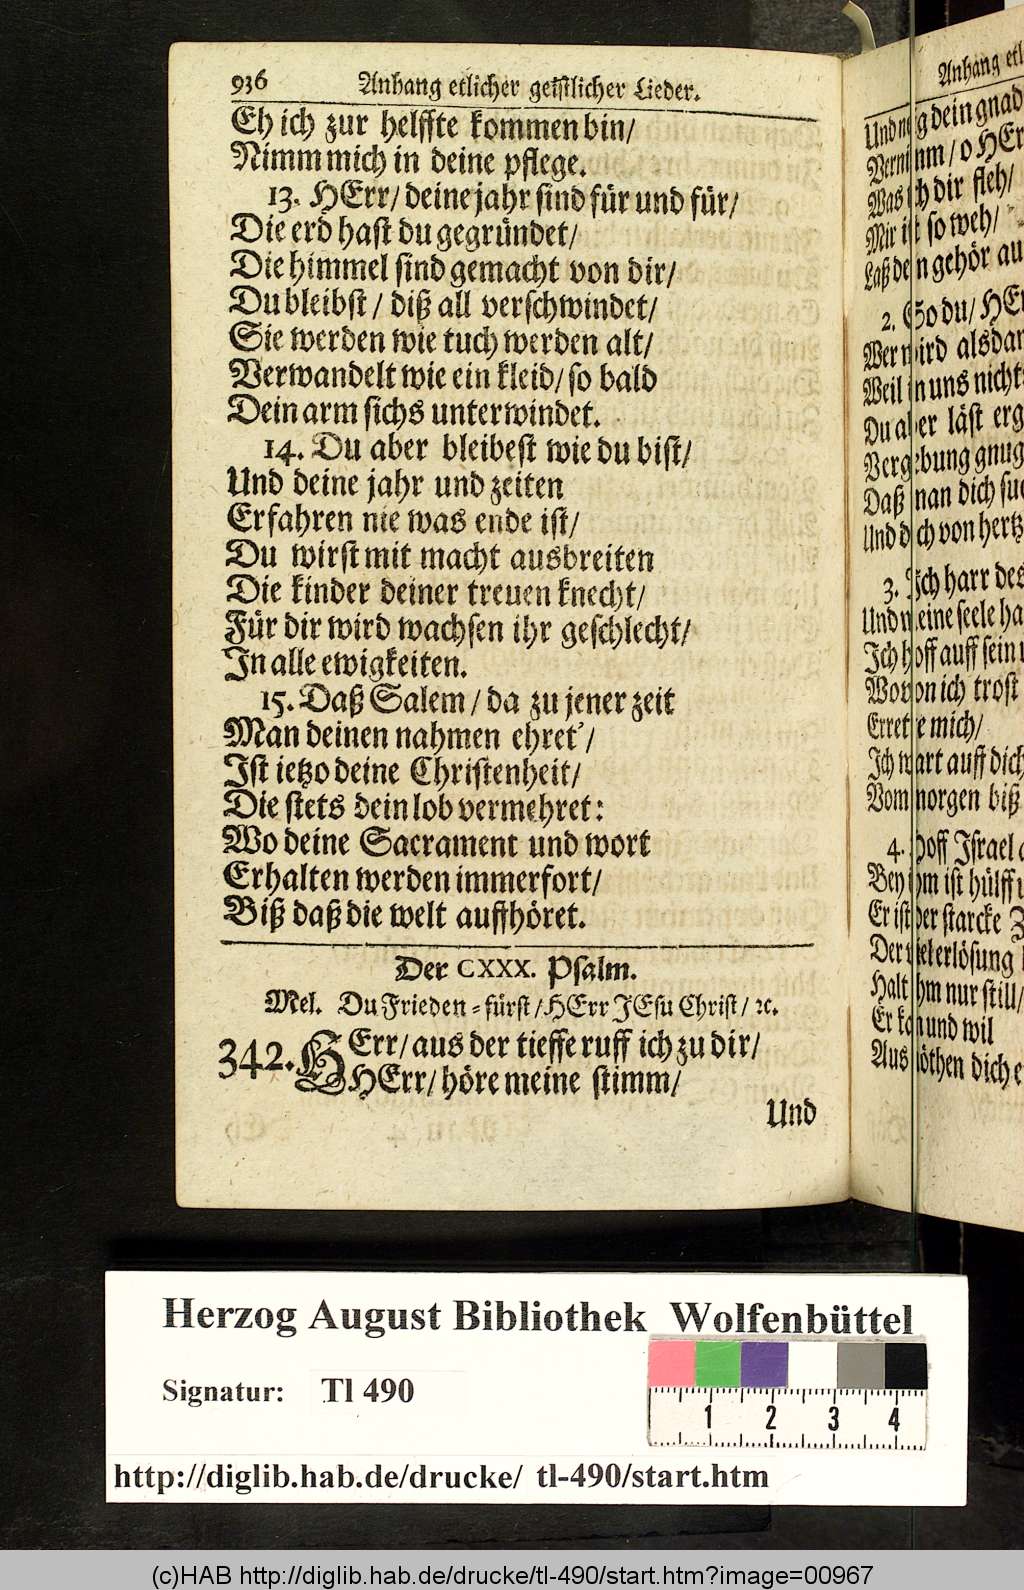 936 Anhang etlicher geistlicher Lieder.
Eh ich zur helffte kommen bin/
Nimm mich in deine pflege.
13. HErr/ deine jahr sind für und für/
Die erd hast du gegründet/
Die himmel sind gemacht von dir/
Du bleibst/ diß all verschwindet/
Sie werden wie tuch werden alt/
Verwandelt wie ein kleid/ so bald
Dein arm sichs unterwindet.
14. Du aber bleibest wie du bist/
Und deine jahr und zeiten
Erfahren nie was ende ist/
Du wirst mit macht ausbreiten
Die kinder deiner treuen knecht/
Für dir wird wachsen ihr geschlecht/
In alle ewigkeiten.
15. Daß Salem/ da zu jener zeit
Man deinen nahmen ehret'/
Ist ietzo deine Christenheit/
Die stets dein lob vermehret:
Wo deine Sacrament und wort
Erhalten werden immerfort/
Biß daß die welt auffhöret.
Der CXXX. Psalm.
Mel. Du Frieden-fürst/ HErr JEsu Christ/ ꝛc.
342. HErr/ aus der tieffe ruff ich zu dir/
HErr/ höre meine stimm/
Und
Anhang
dein
Vernimm/ o
Was ich dir fleh/
Mir ist so weh/
Laß dein gehör
2. So du/
Wer wird
Weil in uns
Du aber läst
Vergebung gnug
Daß man dich
Und dich von
3. Ich harr des
Und meine seele
Ich hoff auff sein
Wovon ich trost
Errette mich/
Ich wart auff dich
Vom morgen biß
4. Hoff Israel
Bey ihm ist hülff
Er ist der starcke
Der viel erlösung
Halt ihm nur still/
Er kan und wil
Aus nöthen dich
Herzog August Bibliothek Wolfenbüttel
Signatur: Tl 490
1 2 3 4
http://diglib.hab.de/drucke/ tl-490/start.htm
(c)HAB http://diglib.hab.de/drucke/tl-490/start.htm?image=00967